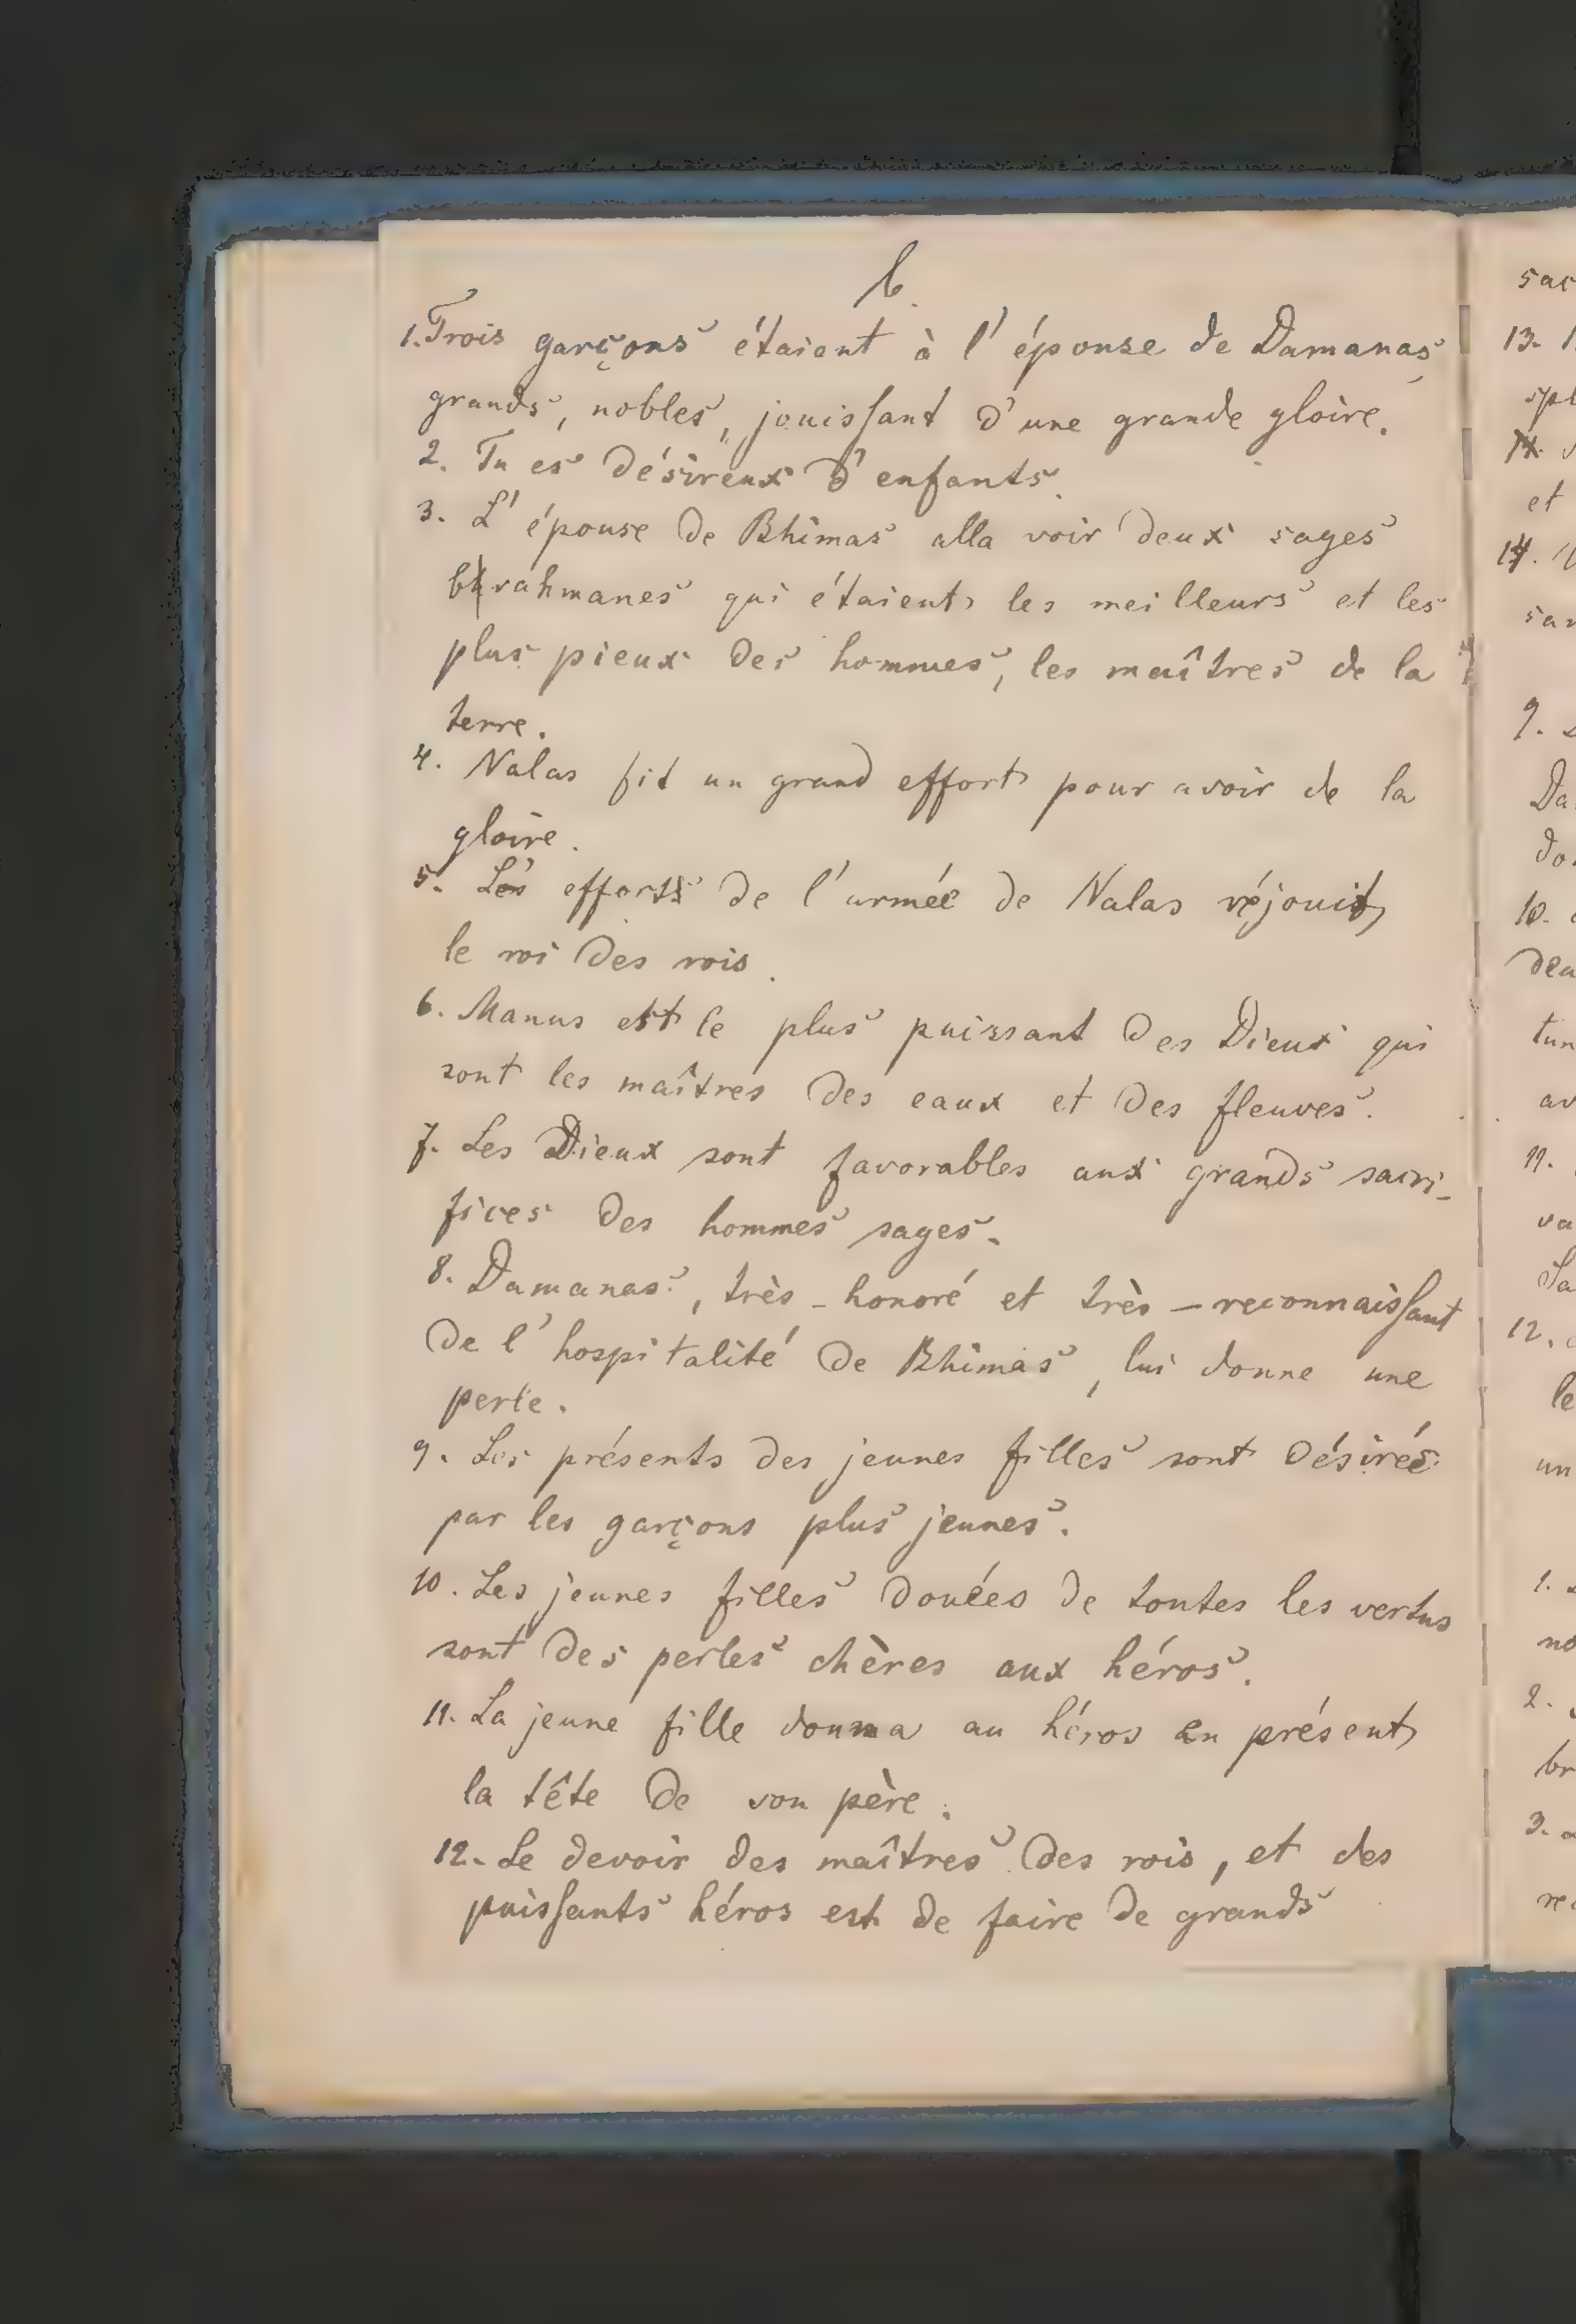 6.
1. Trois garçons étaient à l'épouse de Damanas,
grands, nobles, jouissant d'une grande gloire.
2. Tu es désireux d'enfants.
3. L'épouse de Bhimas alla voir deux sages
brahmanes qui étaient les meilleurs et les
plus pieux des hommes, les maîtres de la
terre.
4. Nalas fit un grand effort pour avoir de la
gloire.
5. Les efforts de l'armée de Nalas réjouit
le roi des rois.
6. Manus est le plus puissant des Dieux qui
sont les maîtres des eaux et des fleuves.
7. Les Dieux sont favorables aux grands sacri-
fices des hommes sages.
8. Damanas, très-honoré et très-reconnaissant
de l'hospitalité de Bhimas, lui donne une
perle.
9. Les présents des jeunes filles sont désirés
par les garçons plus jeunes.
10. Les jeunes filles douées de toutes les vertus
sont des perles chères aux héros.
11. La jeune fille donna au héros en présent
la tête de son père.
12. Le devoir des maîtres des rois, et des
puissants héros est de faire de grands
13.
et
9.
10.
11.
12.
le
un
1.
2.
3.